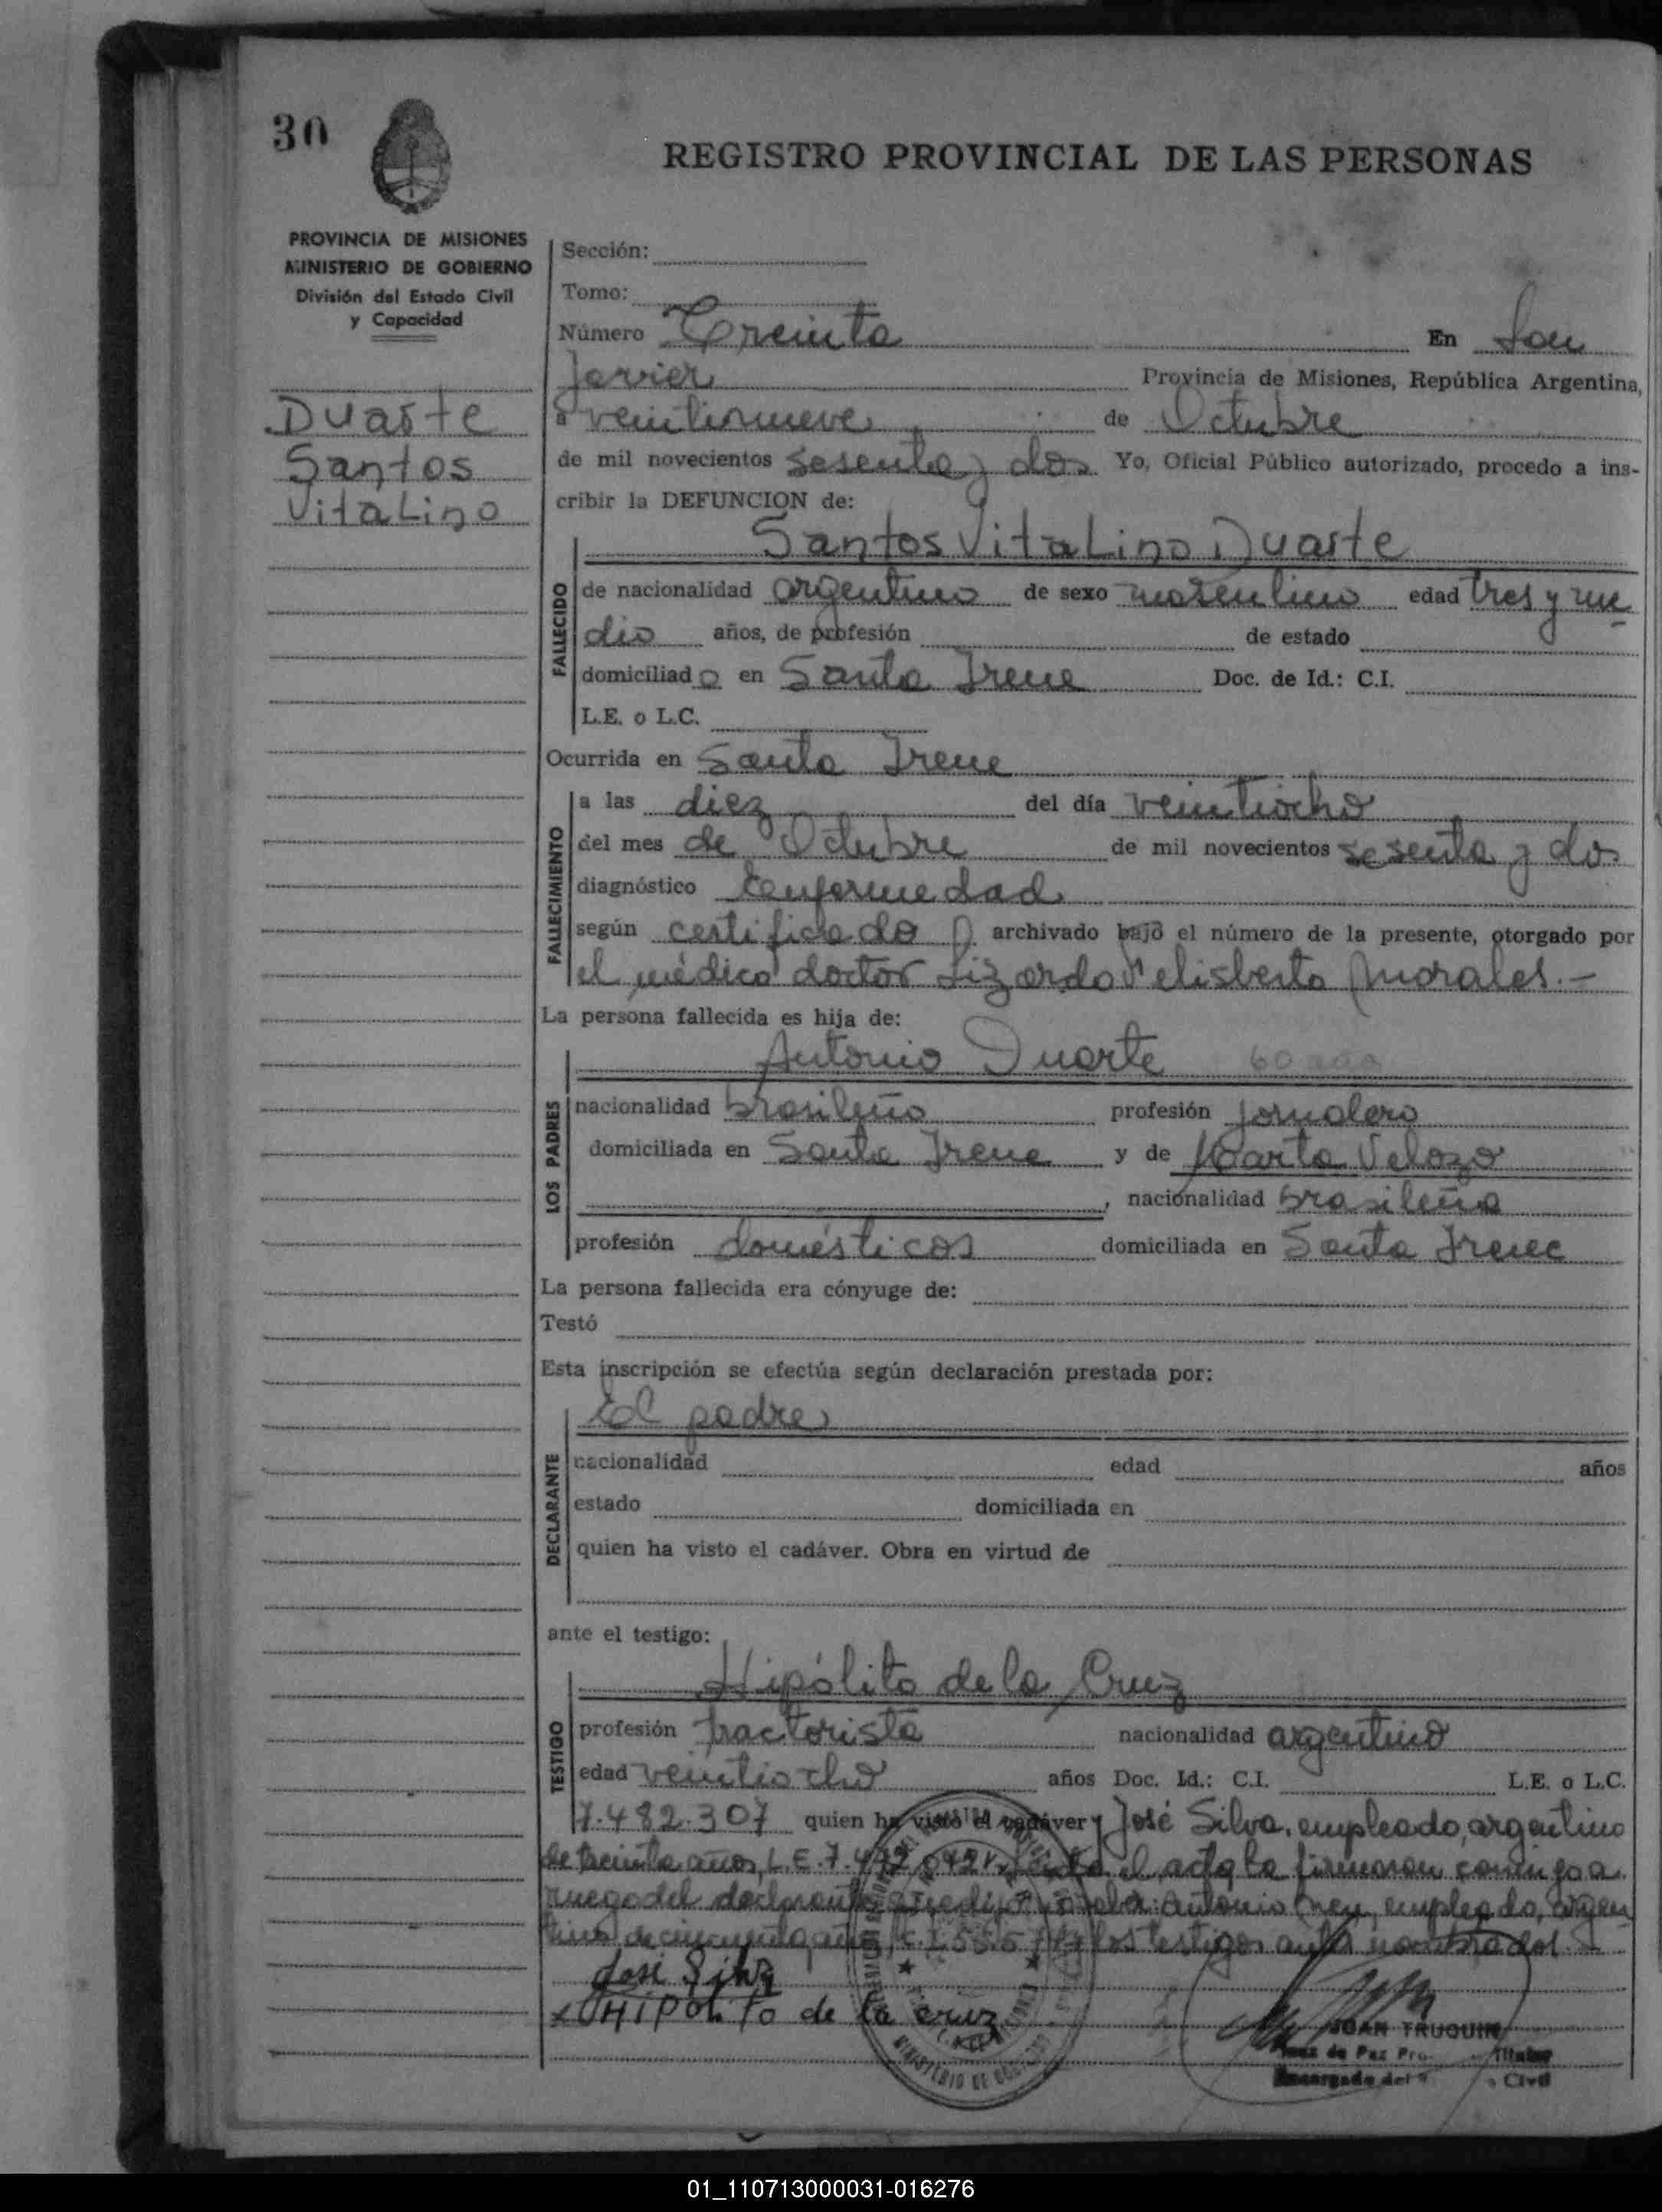 30
REGISTRO PROVINCIAL DE LAS PERSONAS
PROVINCIA DE MISIONES
MINISTERIO DE GOBIERNO
División del Estado Civil
y Capacidad
Duarte
Santos
Vitalino
Sección:
Tomo:
Número Treinta En San
Javier Provincia de Misiones, República Argentina,
a veintinueve de Octubre
de mil novecientos sesenta y dos Yo, Oficial Público autorizado, procedo a ins-
cribir la DEFUNCION de:
Santos Vitalino Duarte
FALLECIDO
de nacionalidad argentino de sexo masculino edad tres y me
dio años, de profesión de estado
domiciliado en Santa Irene Doc. de Id.: C.I.
L.E. o L.C.
Ocurrida en Santa Irene
FALLECIMIENTO
a las diez del día veintiocho
del mes de Octubre de mil novecientos sesenta y dos
diagnóstico Enfermedad
según certificado archivado bajo el número de la presente, otorgado por
el médico doctor Lizardo Felisberto Morales.-
La persona fallecida es hija de:
Antonio Duarte
LOS PADRES
nacionalidad brasileño profesión jornalero
domiciliada en Santa Irene y de Marta Velozo
, nacionalidad brasileña
profesión domésticos domiciliada en Santa Irene
La persona fallecida era cónyuge de:
Testó
Esta inscripción se efectúa según declaración prestada por:
El padre
DECLARANTE
nacionalidad edad años
estado domiciliada en
quien ha visto el cadáver. Obra en virtud de
ante el testigo:
Hipólito de la Cruz
TESTIGO
profesión tractorista nacionalidad argentino
edad veintiocho años Doc. Id.: C.I. L.E. o L.C.
7.482.307 quien ha visto el cadáver y José Silva, empleado, argentino
de treinta años, L.E. 7. el acta la firmaron conmigo a
ruego del declarante Antonio empleado, argen
tino de cincuenta los testigos nombrados
José Silva
Hipolito de la cruz
JUAN TRUQUIN
Juez de Paz Titular
Encargado del Civil
MINISTERIO DE GOBIERNO
01_110713000031-016276